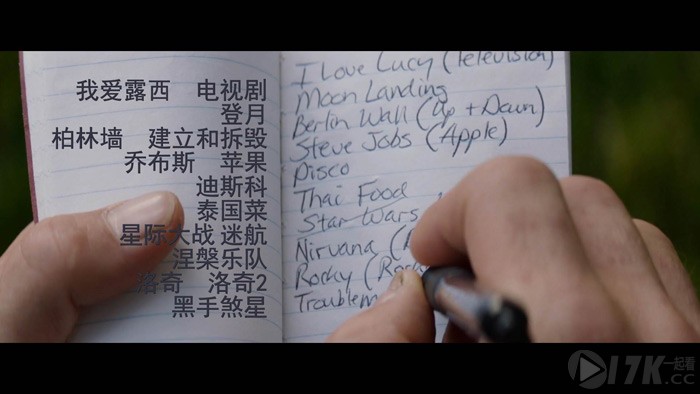 我爱露西 电视剧
登月
柏林墙 建立和拆毁
乔布斯 苹果
迪斯科
泰国菜
星际大战 迷航
涅槃乐队
洛奇 洛奇2
黑手煞星
I Love Lucy (Television)
Moon Landing
Berlin Wall (Up + Down)
Steve Jobs (Apple)
Disco
Thai Food
Star Wars
Nirvana (
Rocky (Rocky
Troublem
17K一起看
.cc